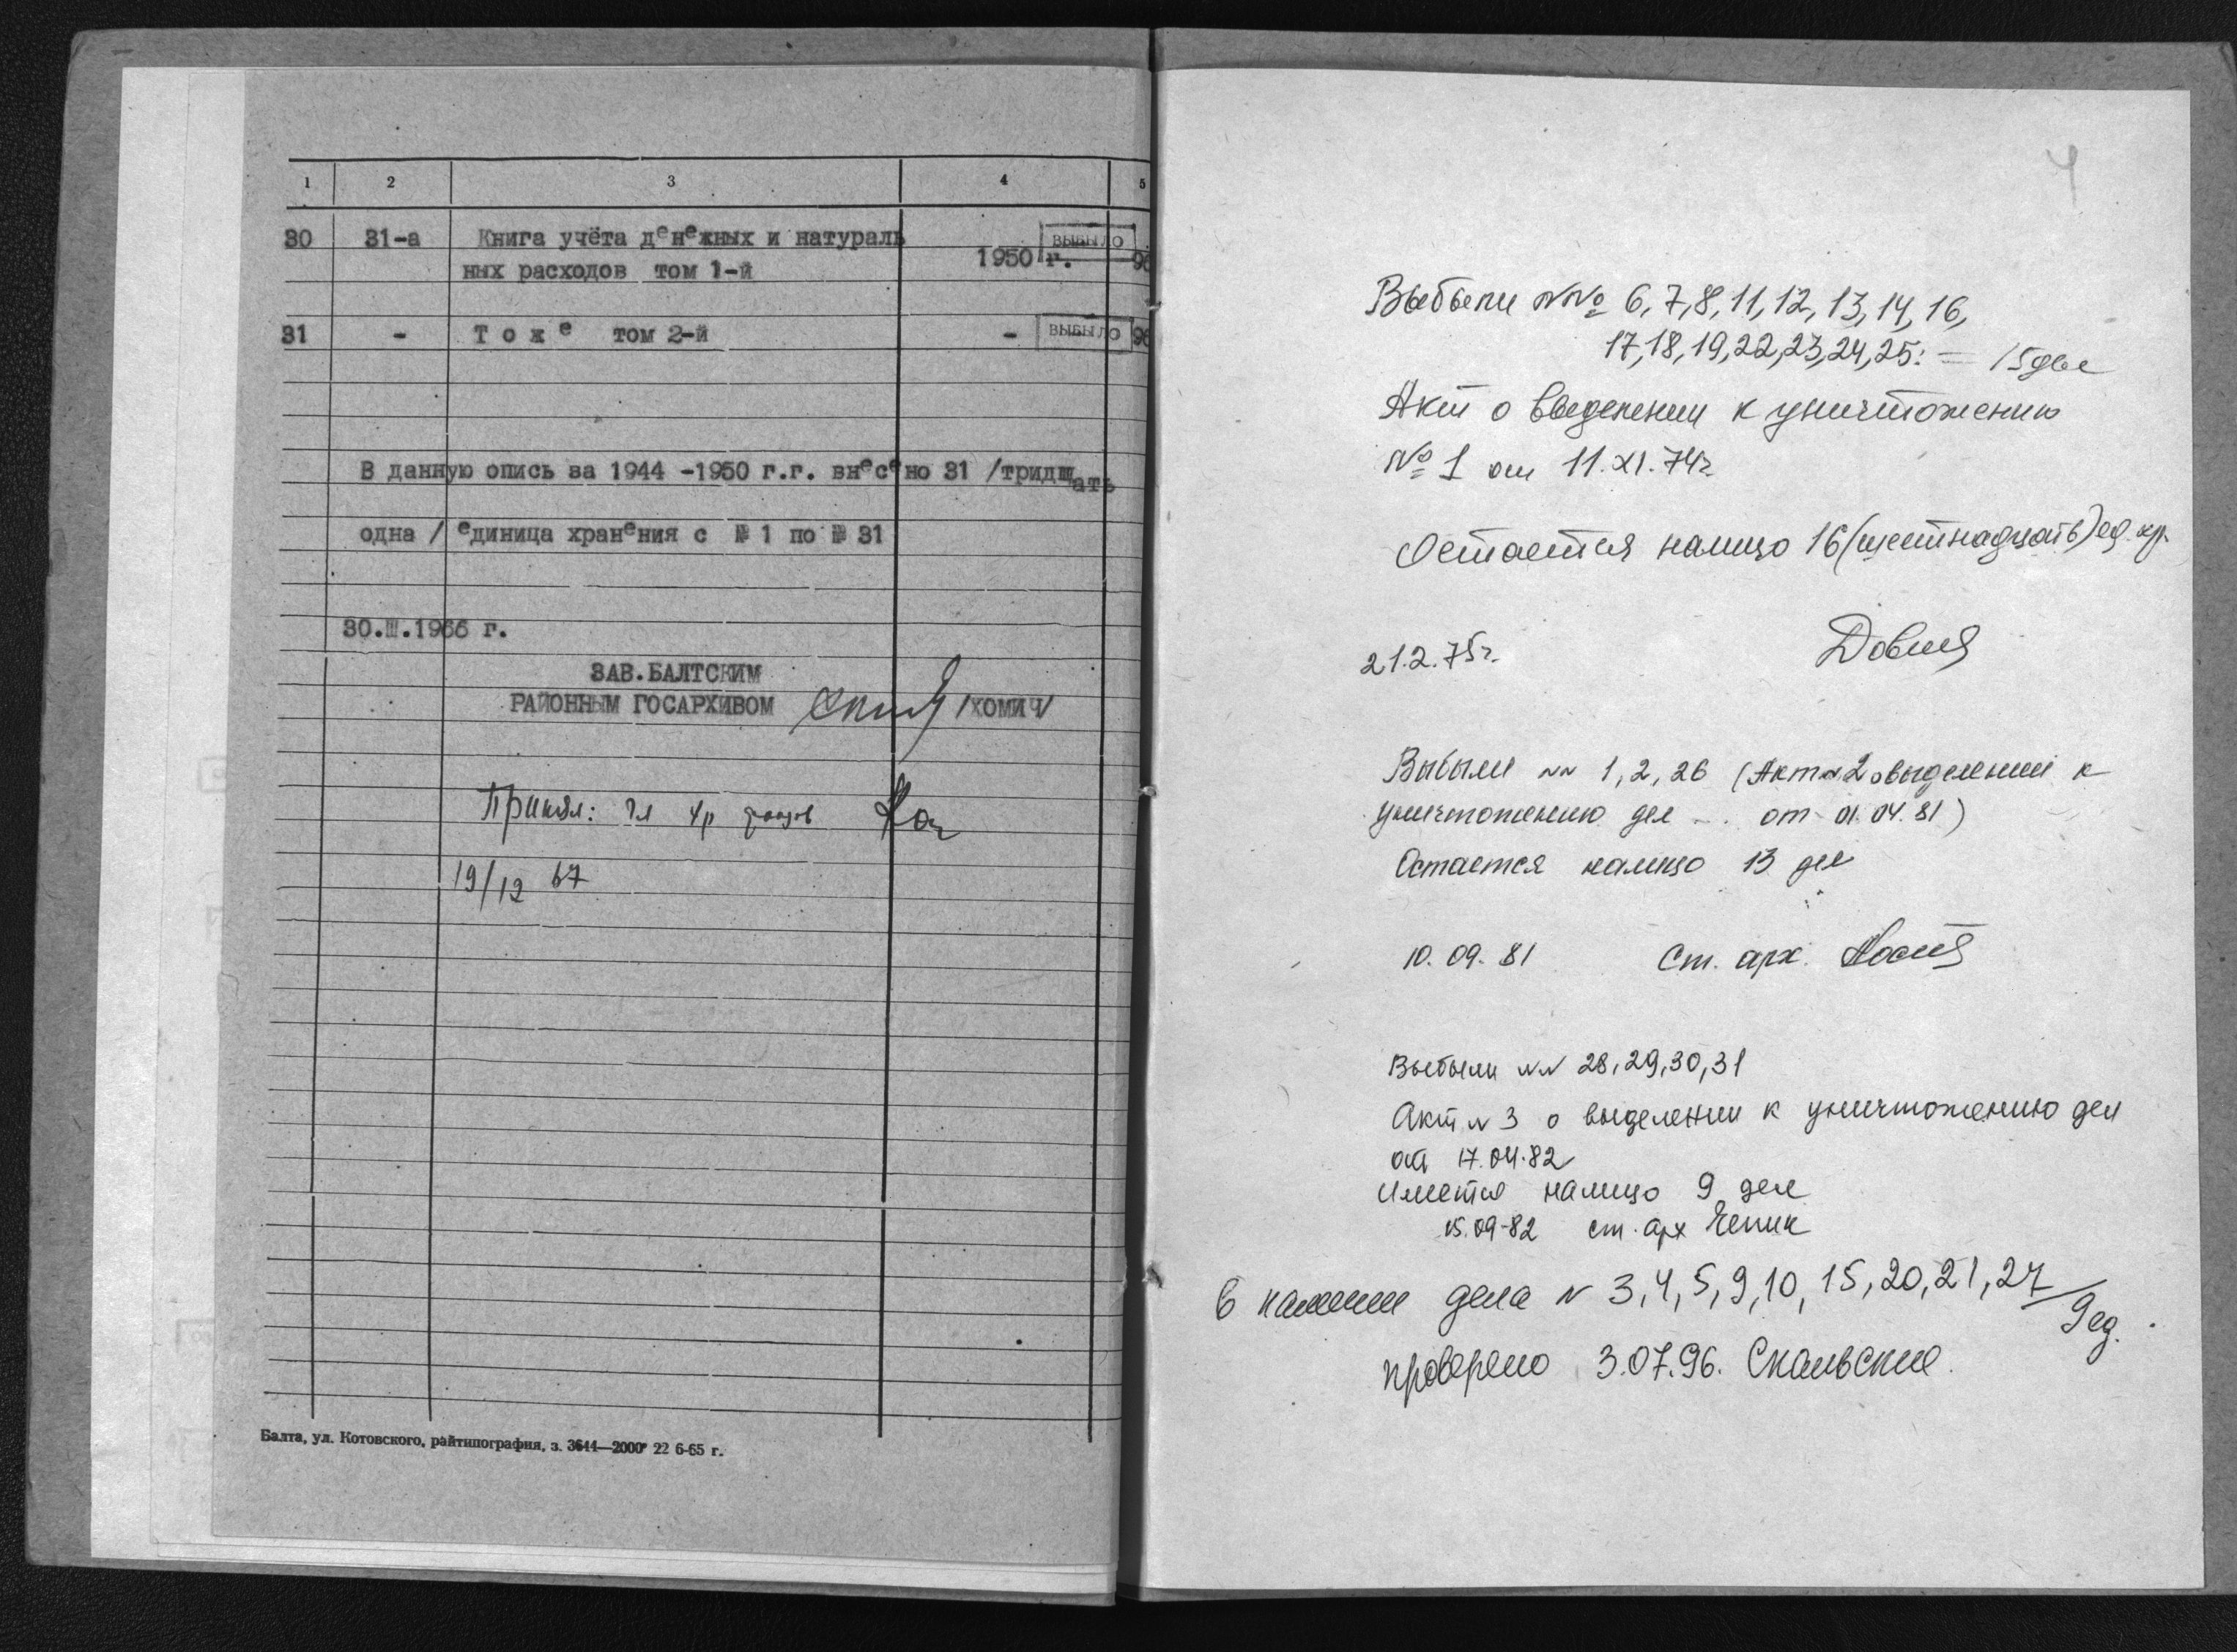 1 2 3 4 5
30 31-а Книга учёта денежных и натураль 1950 г. выбыло 96
ных расходов том 1-й
31 - Т о ж е том 2-й - выбыло 96
В данную опись за 1944 -1950 г.г. внесено 31 /тридцать
одна / единица хранения с № 1 по № 31
30.Ш.1966 г.
ЗАВ.БАЛТСКИМ
РАЙОННЫМ ГОСАРХИВОМ /ХОМИЧ/
Принял: гл хр фондов
19/12 67
Балта, ул. Котовского, райтипография, з. 3644—2000 22 6-65 г.
4
Выбыли №№ 6, 7, 8, 11, 12, 13, 14, 16,
17, 18, 19, 22, 23, 24, 25: = 15
Акт о выделении к уничтожению
№ 1 от 11.XI.74г.
Остается налицо 16 (шестнадцать) ед. хр.
21.2.75г.
Выбыли №№ 1, 2, 26 (Акт № 2 о выделении к
уничтожению дел ... от 01.04.81)
Остается налицо 13 дел
10.09.81 Ст. арх.
Выбыли №№ 28, 29, 30, 31
Акт № 3 о выделении к уничтожению дел
от 17.04.82
Имеется налицо 9 дел
15.09-82 ст. арх Чепик
В наличии дела № 3, 4, 5, 9, 10, 15, 20, 21, 27 / 9 ед.
проверено 3.07.96.